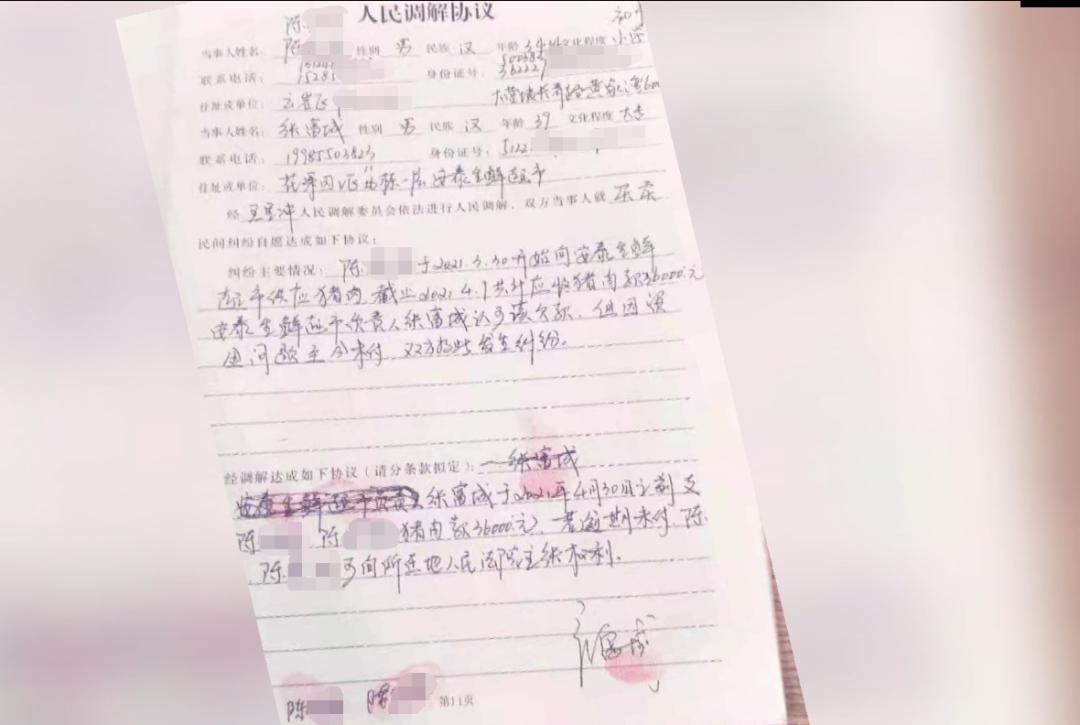 人民调解协议
陈 初中
当事人姓名： 陈 性别 男 民族 汉 年龄 34 文化程度 小学
联系电话： 身份证号：
住址或单位： 云岩区
当事人姓名： 张富城 性别 男 民族 汉 年龄 39 文化程度 大专
联系电话： 19985503823 身份证号： 5122
住址或单位： 花溪 一层 安泰生鲜超市
经 人民调解委员会依法进行人民调解，双方当事人就 买卖
民间纠纷自愿达成如下协议：
纠纷主要情况： 陈 于2021.3.30开始向安泰生鲜
超市供应猪肉，截止2021.4.7共计应收猪肉款36000元
安泰生鲜超市负责人张富城认可该欠款，但因资
金问题至今未付，双方为此发生纠纷。
经调解达成如下协议（请分条款拟定）： 张富城
安泰生鲜超市负责人张富城于2021年4月30日之前支
陈 、陈 猪肉款36000元，若逾期未付，陈
、陈 可向所在地人民法院主张权利。
陈 陈 第11页